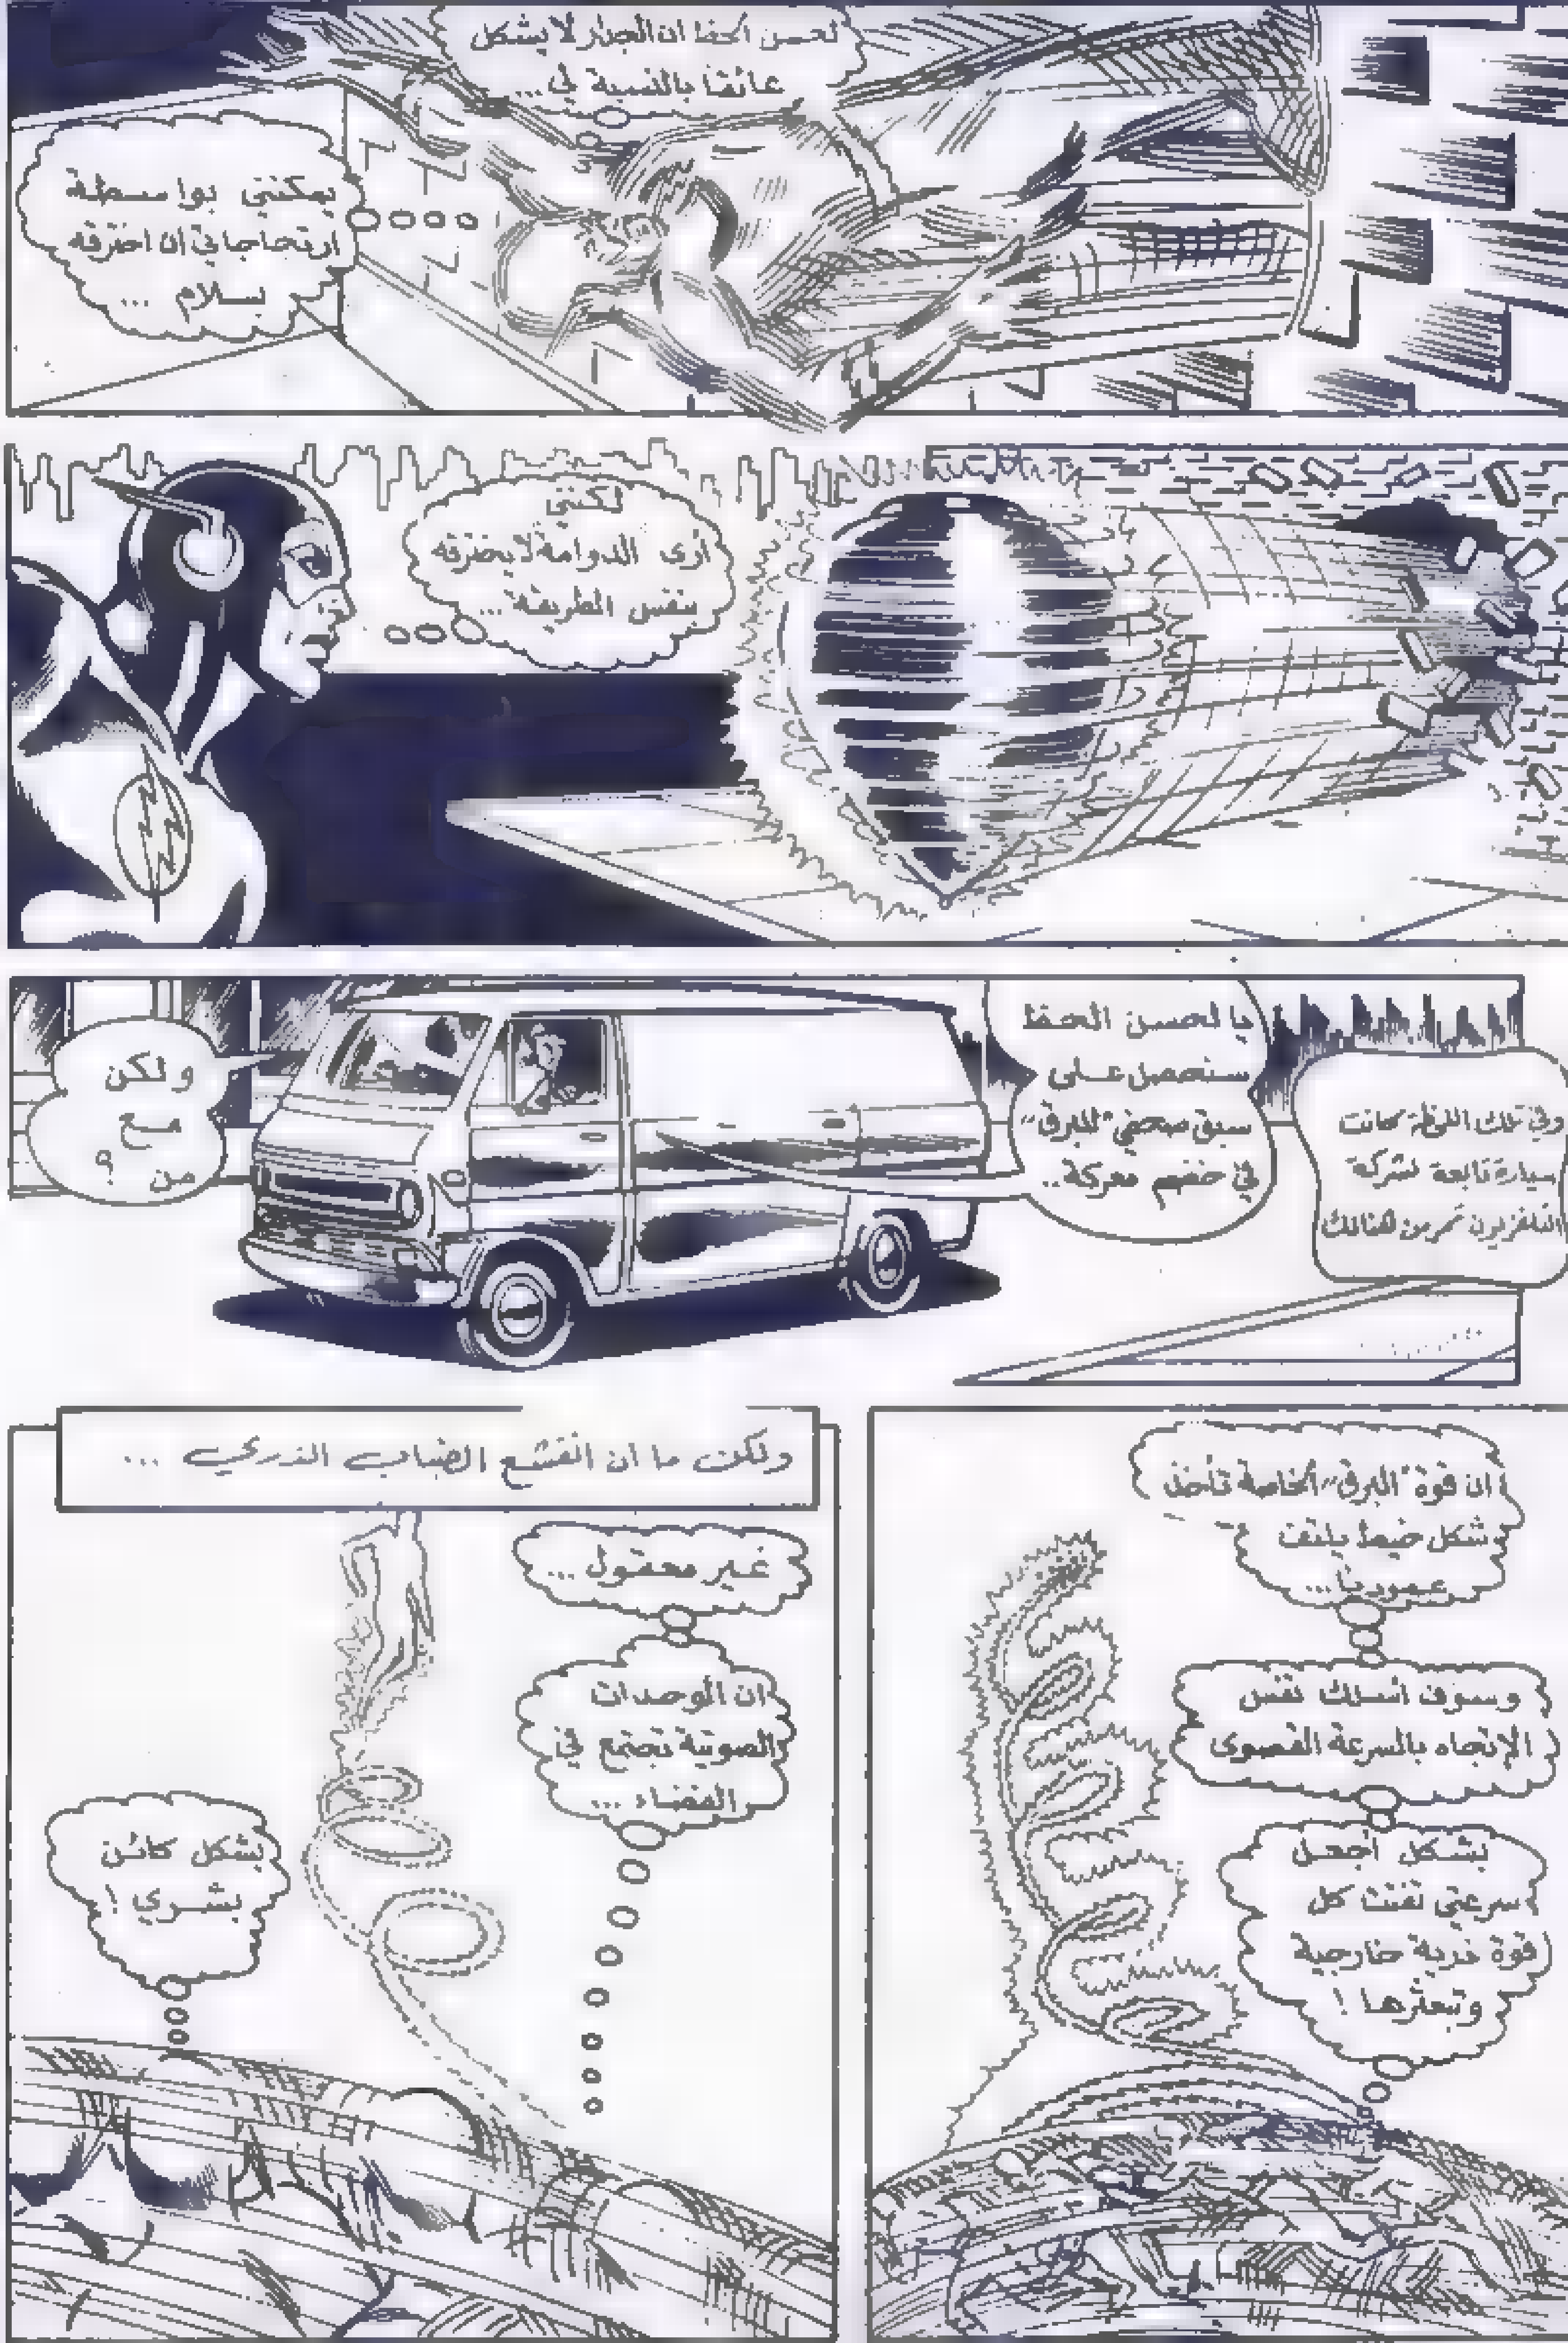 لحسن الحظ ان الجدار لا يشكل
عائقا بالنسبة لي...
يمكنني بواسطة
ارتجاجاتي ان اخترقه
بسلام ...
لكنني
أرى الدوامة لا يخترقه
بنفس الطريقة...
وفي تلك اللحظة كانت
سيارة تابعة لشركة
التلفزيون تمر من هنالك
يا لحسن الحظ
سنحصل على
سبق صحفي "للبرق"
في خضم معركة..
ولكن
مع
من ؟
ان قوة "البرق" الخاصة تأخذ
شكل خيط يلتف
عموديا...
وسوف اسلك نفس
الإتجاه بالسرعة القصوى
بشكل أجعل
سرعتي تفتت كل
قوة ذرية خارجية
وتبعثرها !
ولكن ما ان انقشع الضباب الذري ...
غير معقول ...
ان الوحدات
الصوتية تجتمع في
الفضاء ...
بشكل كائن
بشري !